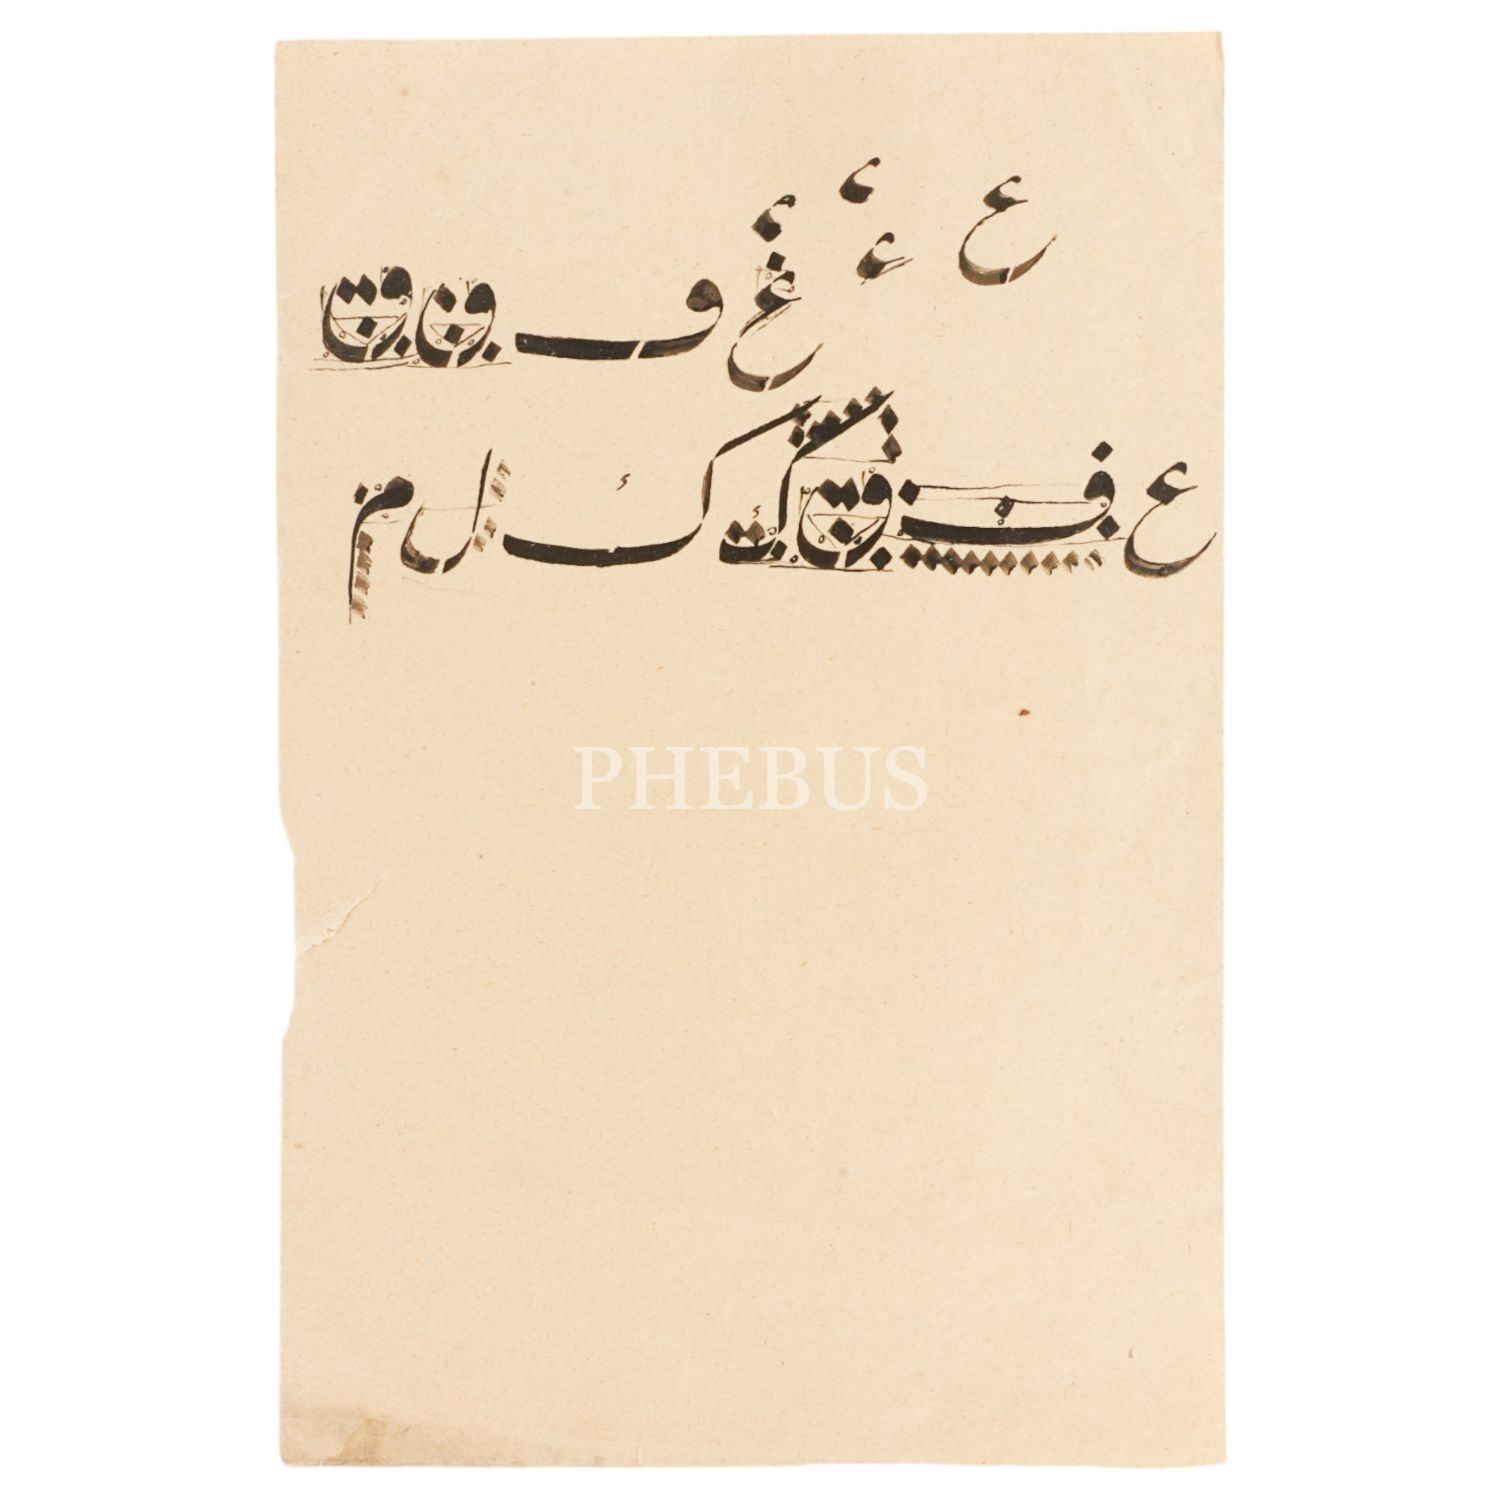 ع ء ء ء ع ف ق ق
ع ف ق ك ك ل م
PHEBUS